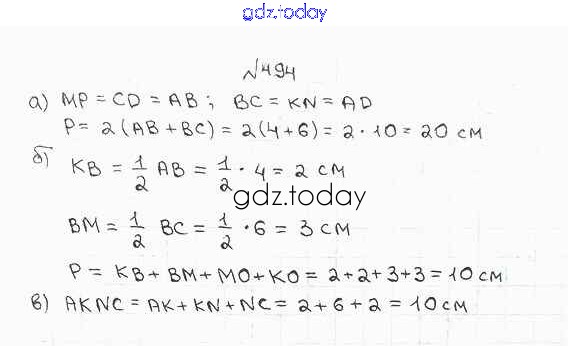 gdz.today
№494
а) MP = CD = AB ; BC = KN = AD
P = 2(AB + BC) = 2(4+6) = 2 · 10 = 20 см
б) KB = 1/2 AB = 1/2 · 4 = 2 см
gdz.today
BM = 1/2 BC = 1/2 · 6 = 3 см
P = KB + BM + MO + KO = 2+2+3+3 = 10 см
в) AKNC = AK + KN + NC = 2 + 6 + 2 = 10 см